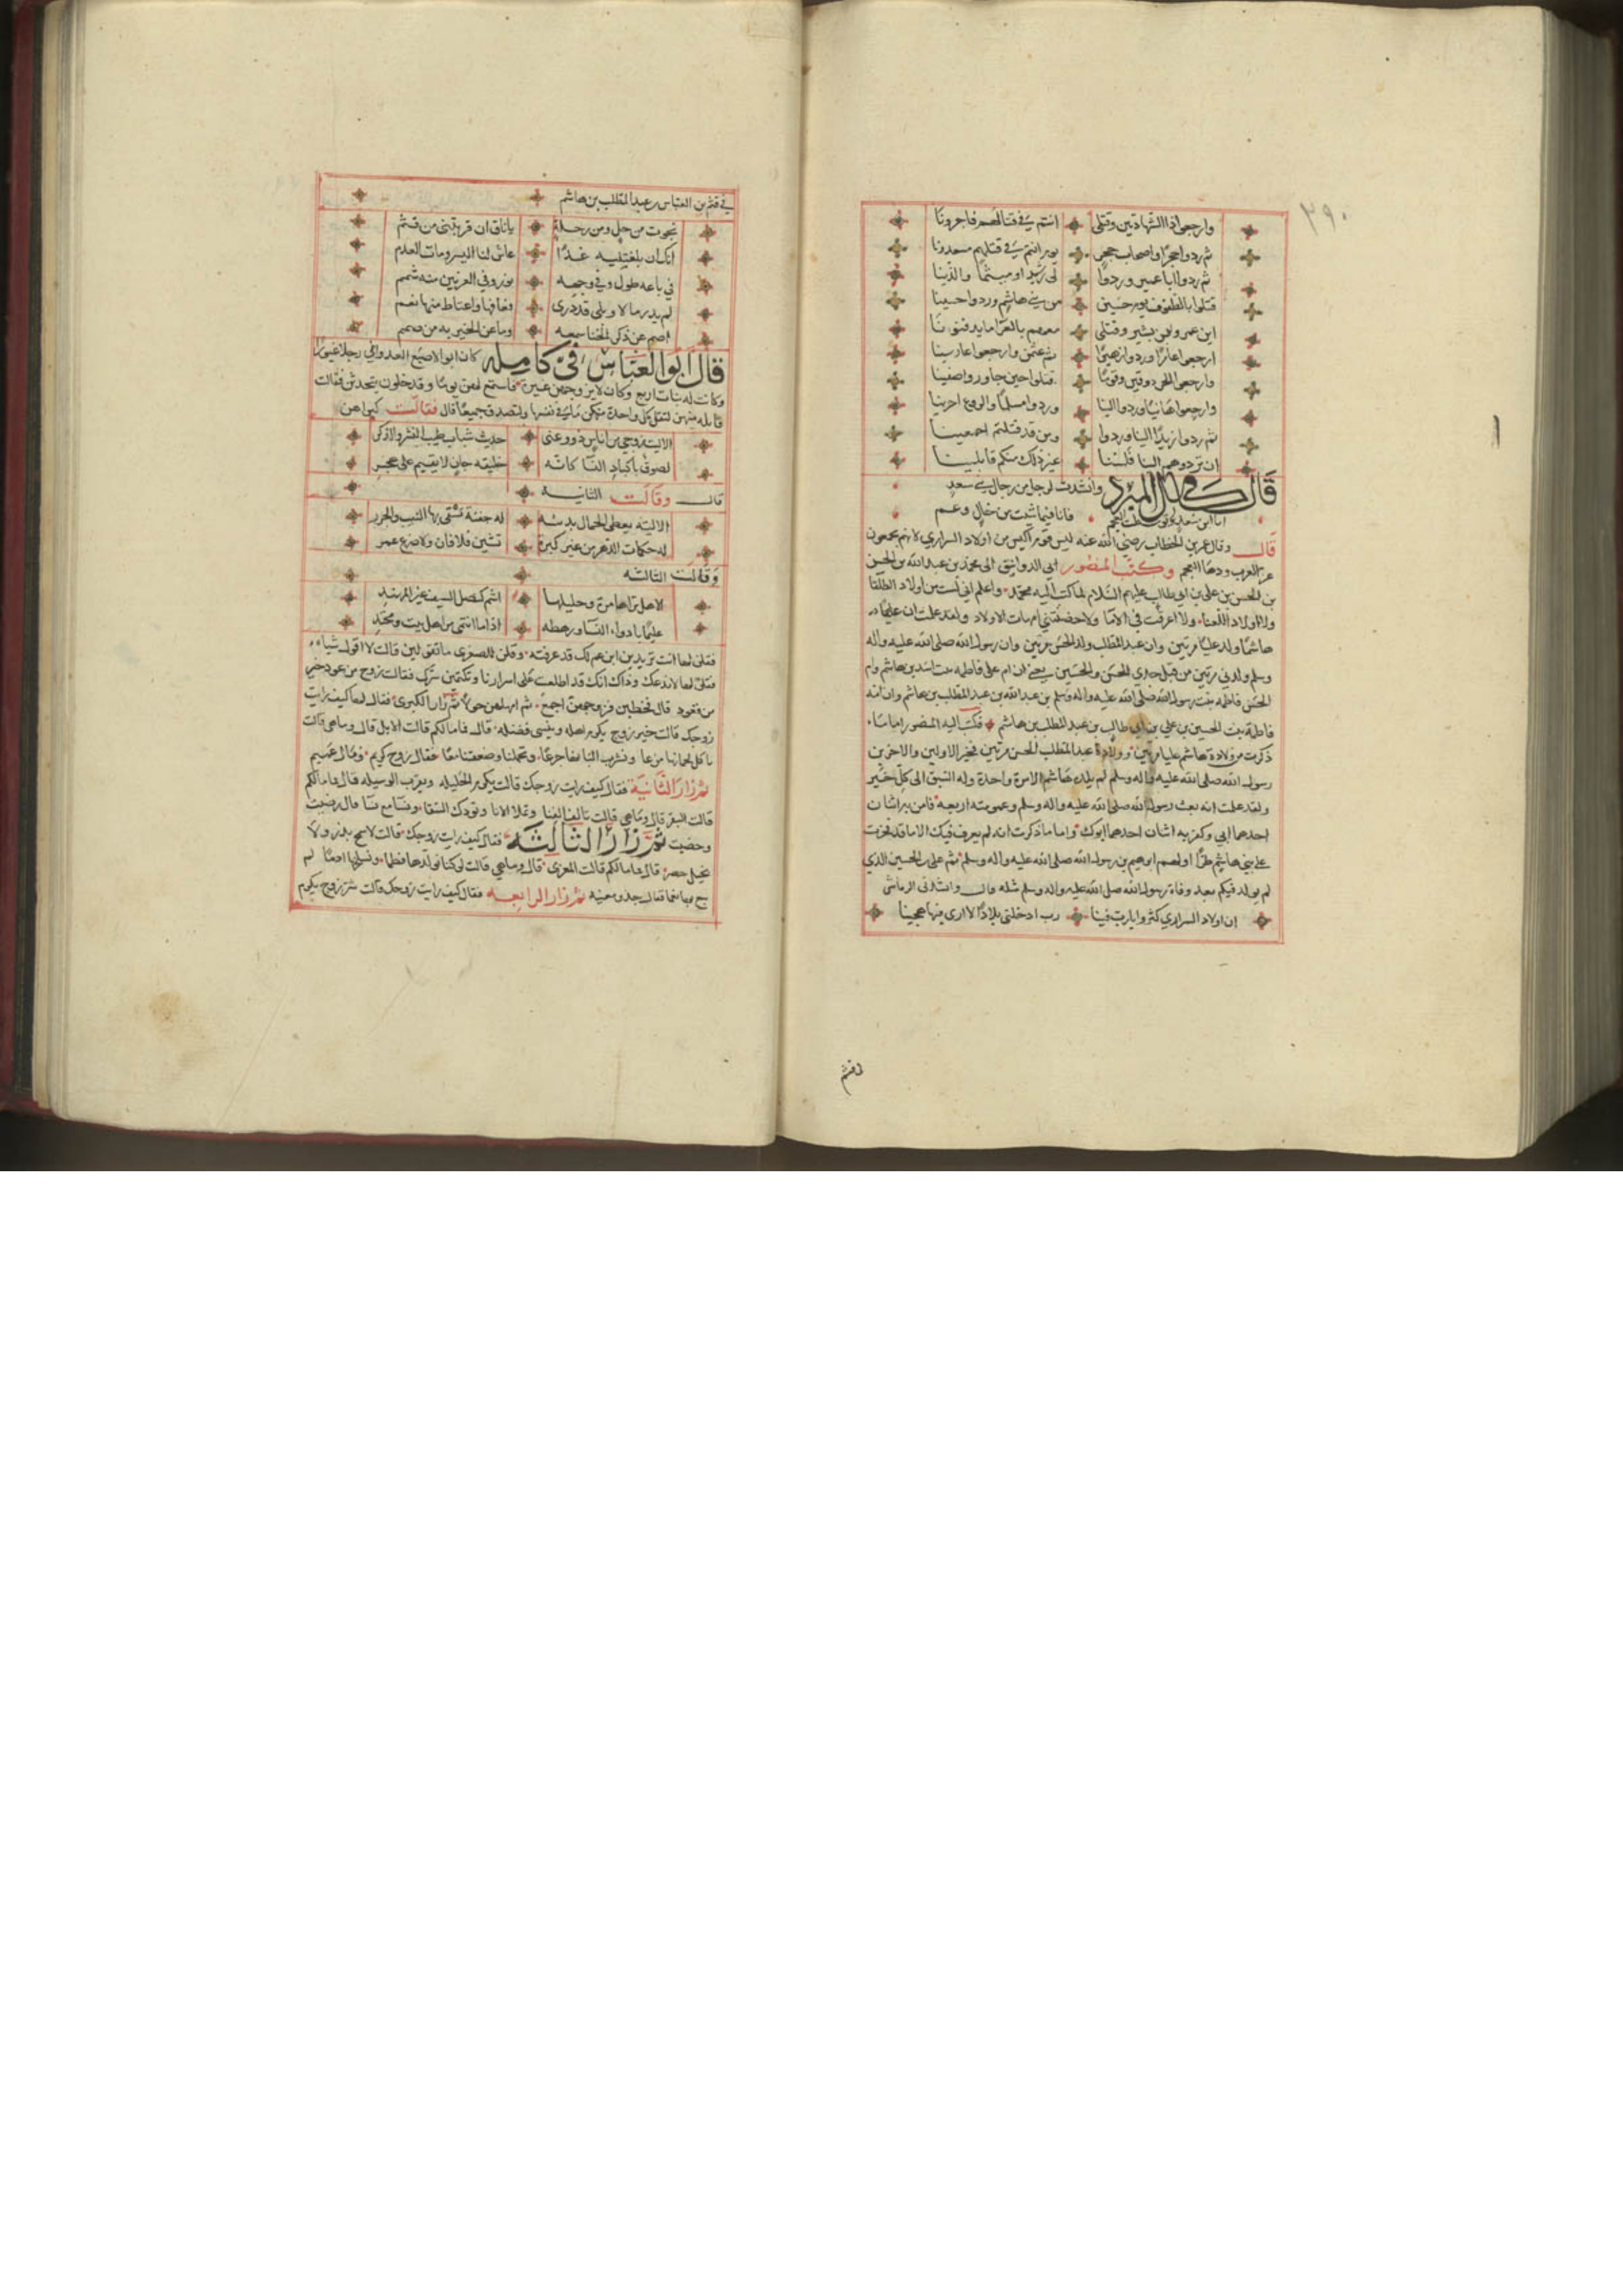 ٣٩٠
وارجعوا ذا الشهادتين وقتلى انتم في قتالهم فاجرونا
ثم ردوا حجرا واصحاب حجر يوم انتم في قتلهم معتدونا
ثم ردوا ابا عمير وردوا لي رشيد او ميثما والذينا
قتلوا بالطفوف يوم حسين من بني هاشم وردوا حسينا
اين عمرو واين بشير وقتلى معهم بالعرا ما يدفنونا
ارجعوا عامرا وردوا زهيرا ثم عثمن وارجعوا عارينا
وارجعوا الحر وقين وقوما قتلوا حين جاور واصفينا
وارجعوا هانيا وردوا الينا وردوا مسلما والروع اخرينا
ثم ردوا زيدا الينا وردوا ومن قد قتلتم اجمعينا
ان تردوهم الينا فلسنا غير ذلك منكم قابلينا
قال في كامل المبرد وانشدت لرجل من رجال بني سعد
انا ابن سعد توسطت العجم فانا فيما شيت من خال وعم
قال وقال عمر بن الخطاب رضي الله عنه ليس قوم اكيس من اولاد السراري لانهم يجمعون
عز العرب ودها العجم وكتب المنصور ابي الدوانيق الى محمد بن عبد الله بن الحسن
بن الحسن بن علي بن ابي طالب عليهم السلام لما كتب اليه محمد واعلم اني لست من اولاد الطلقا
ولا اولاد اللعنا ولا اعرقت في الاما ولا حضنتني امهات الاولاد ولقد علمت ان
هاشما ولد عليا مرتين وان عبد المطلب ولد الحسن مرتين وان رسول الله صلى الله عليه واله
وسلم ولدني مرتين من قبل جدي الحسن والحسين يعني ان ام علي فاطمه بنت اسد بن هاشم وام
الحسن فاطمه بنت رسول الله صلى الله عليه واله وسلم بن عبد الله بن عبد المطلب بن هاشم وان امه
فاطمة بنت الحسين بن علي بن ابي طالب بن عبد المطلب بن هاشم فكتب اليه المنصور اما ما
ذكرت من ولادة هاشم عليا مرتين وولادة عبد المطلب الحسن مرتين فخير الاولين والاخرين
رسول الله صلى الله عليه واله وسلم لم يلده هاشم الا مرة واحدة وله السبق الى كل خير
ولقد علمت انه بعث رسول الله صلى الله عليه واله وسلم وعمومته اربعه فامن به اثنان
احدهما ابي وكفر به اثنان احدهما ابوك واما ما ذكرت انه لم يعرف فيك الاما قد فخرت
على بني هاشم طرا اولهم ابرهيم بن رسول الله صلى الله عليه واله وسلم ثم علي بن الحسين الذي
لم يولد فيكم بعد وفاة رسول الله صلى الله عليه واله وسلم مثله قال وانشدني الرياشي
ان اولاد السراري كثروا يا رب فينا رب ادخلني بلادا لا ارى فيها هجينا
في قثم
في قثم بن العباس بن عبد المطلب بن هاشم
نجوت من حل ومن رحلة يا ناق ان قربتني من قثم
انك ان بلغتنيه غدا عاش لنا اليسر ومات العدم
في باعه طول وفي وجهه نور وفي العرنين منه شمم
لم يدر ما لا وبلى قد درى فعافها واعتاض منها نعم
اصم عن ذكر الخنا سمعه وما عن الخير به من صمم
قال ابو العباس في كامله كان ابو الاصبع العدواني رجلا غيورا
وكانت له بنات اربع وكان لا يزوجهن غيرة فاستمع لهن يوما وقد خلون يتحدثن فقالت
قايله منهن لتقل كل واحدة منكن ما في نفسها ولتصدق جميعا قال فقالت كبراهن
الا ليت زوجي من اناس ذوي غنى حديث شباب طيب النشر والذكر
لصوق باكباد النسا كانه خليفه جان لا يقيم على هجر
قال وقالت الثانيه
الا ليته يعطى الجمال بديئه له جفنة تشقى بها النيب والجزر
له حكمات الدهر من غير كبرة تشين فلا فان ولا ضرع غمر
وقالت الثالثه
الا هل تراها مرة وحليلها اشم كنصل السيف غير المهند
عليما بادواء النسا ورهطه اذا ما انتمى من اهل بيت ومحتد
فقلن لها انت تريدين ابن عم لك قد عرفته وقلن للصغرى ما تقولين قالت لا اقول شيا
فقلن لها لا ندعك وذاك انك قد اطلعت على اسرارنا وتكتمين سرك فقالت زوج من عود خير
من قعود قال فخطبن فزوجهن اجمع ثم امهلهن حولا ثم زار الكبرى فقال لها كيف رايت
زوجك قالت خير زوج يكرم اهله وينسى فضله قال فما مالكم قالت الابل قال وما هي قالت
ناكل لحمانها مزعا ونشرب البانها جرعا وتحملنا وضعفتنا معا فقال زوج كريم ومال عميم
ثم زار الثانية فقال كيف رايت زوجك قالت يكرم الحليله ويقرب الوسيله قال فما مالكم
قالت البقر قال وما هي قالت تالف الفنا وتملا الانا وتودك السقا ونسا مع نسا قال رضيت
وحظيت ثم زار الثالثه فقال كيف رايت زوجك قالت لا سمح بذر ولا
بخيل حصر قال فما مالكم قالت المعزى قال وما هي قالت لو كنا نولدها فطما ونسلخها ادما لم
نبغ بها نعما فقال جذو مغنيه ثم زار الرابعه فقال كيف رايت زوجك قالت شر زوج يكرم